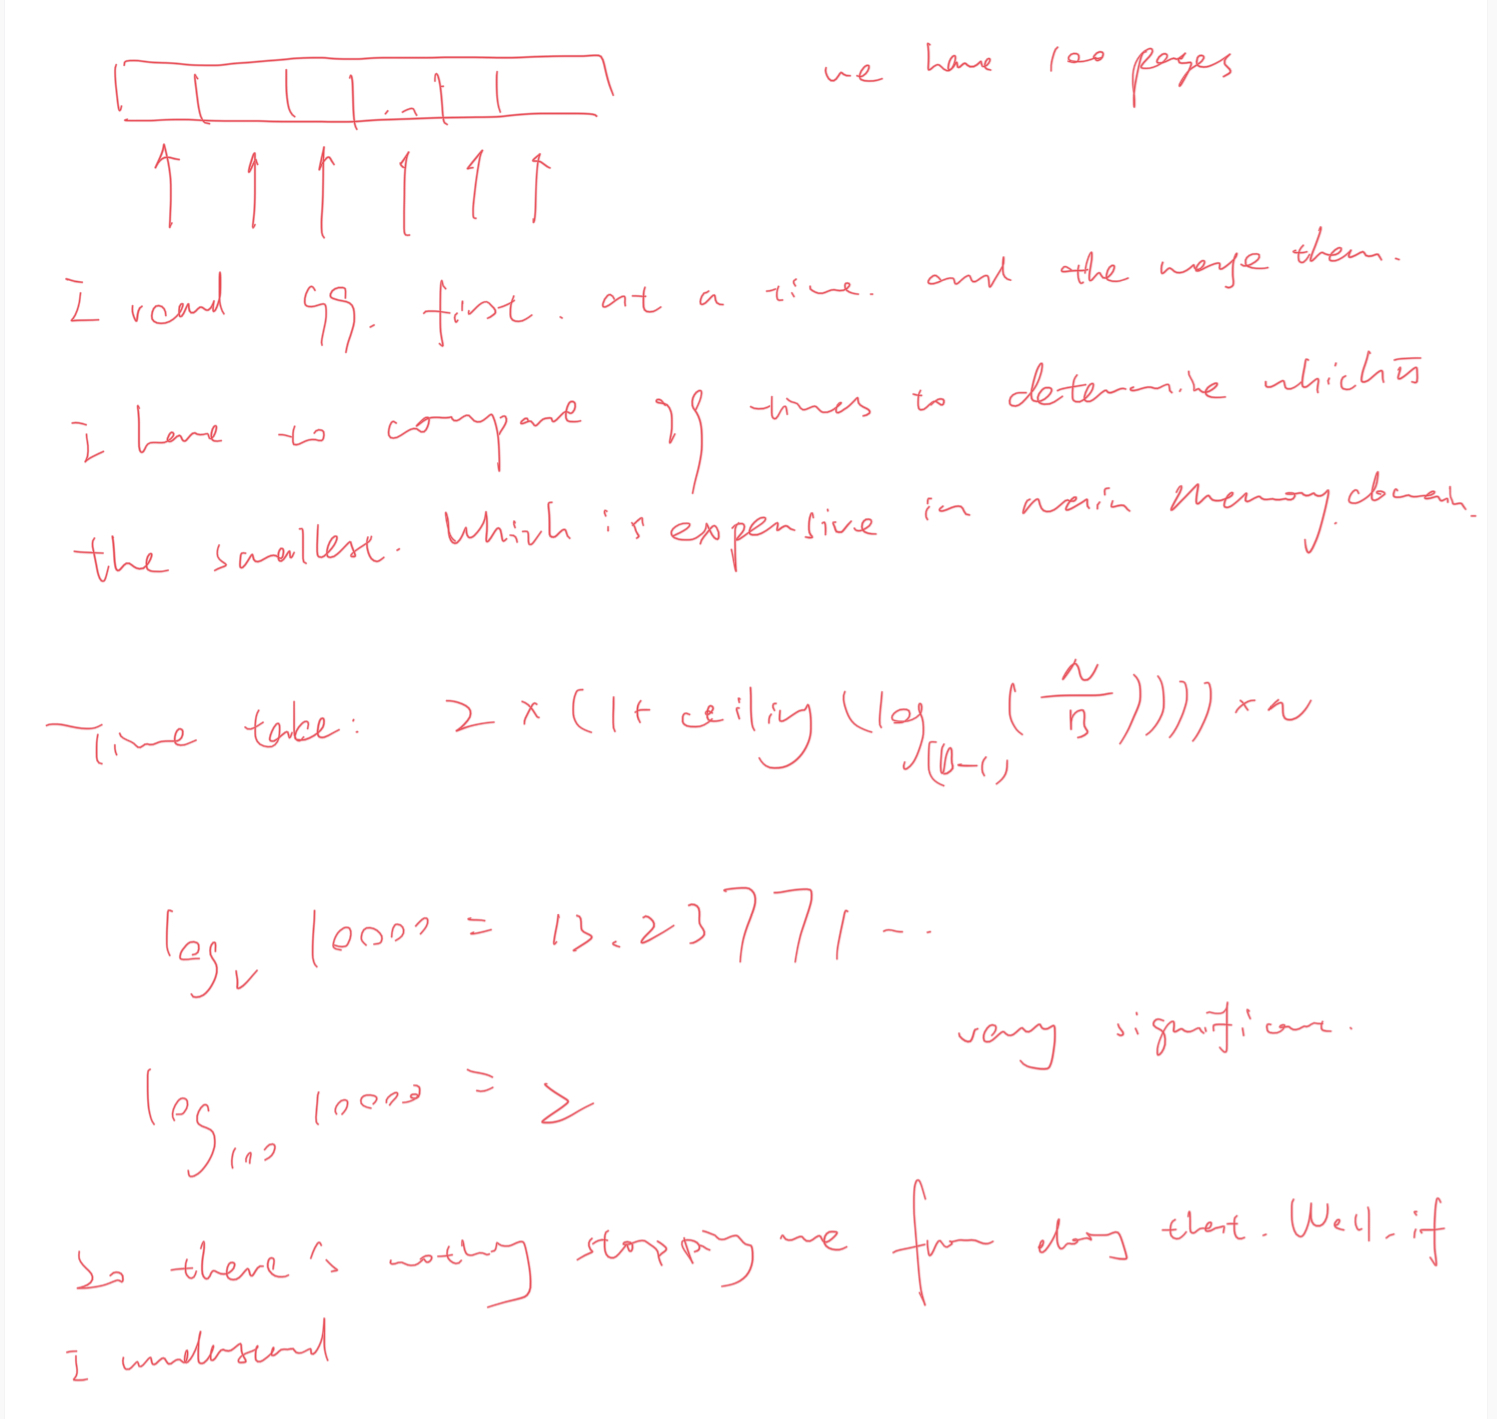 we have 100 pages
I read 99. first. at a time. and the merge them.
I have to compare 99 times to determine which is
the smallest. Which is expensive in main memory domain.
Time take: 2 × (1+ ceiling (log(B-1) (N/B)))) × N
log2 10000 = 13.28771 ...
very significant.
log100 10000 = 2
So there's nothing stopping me from doing that. Well, if
I understand